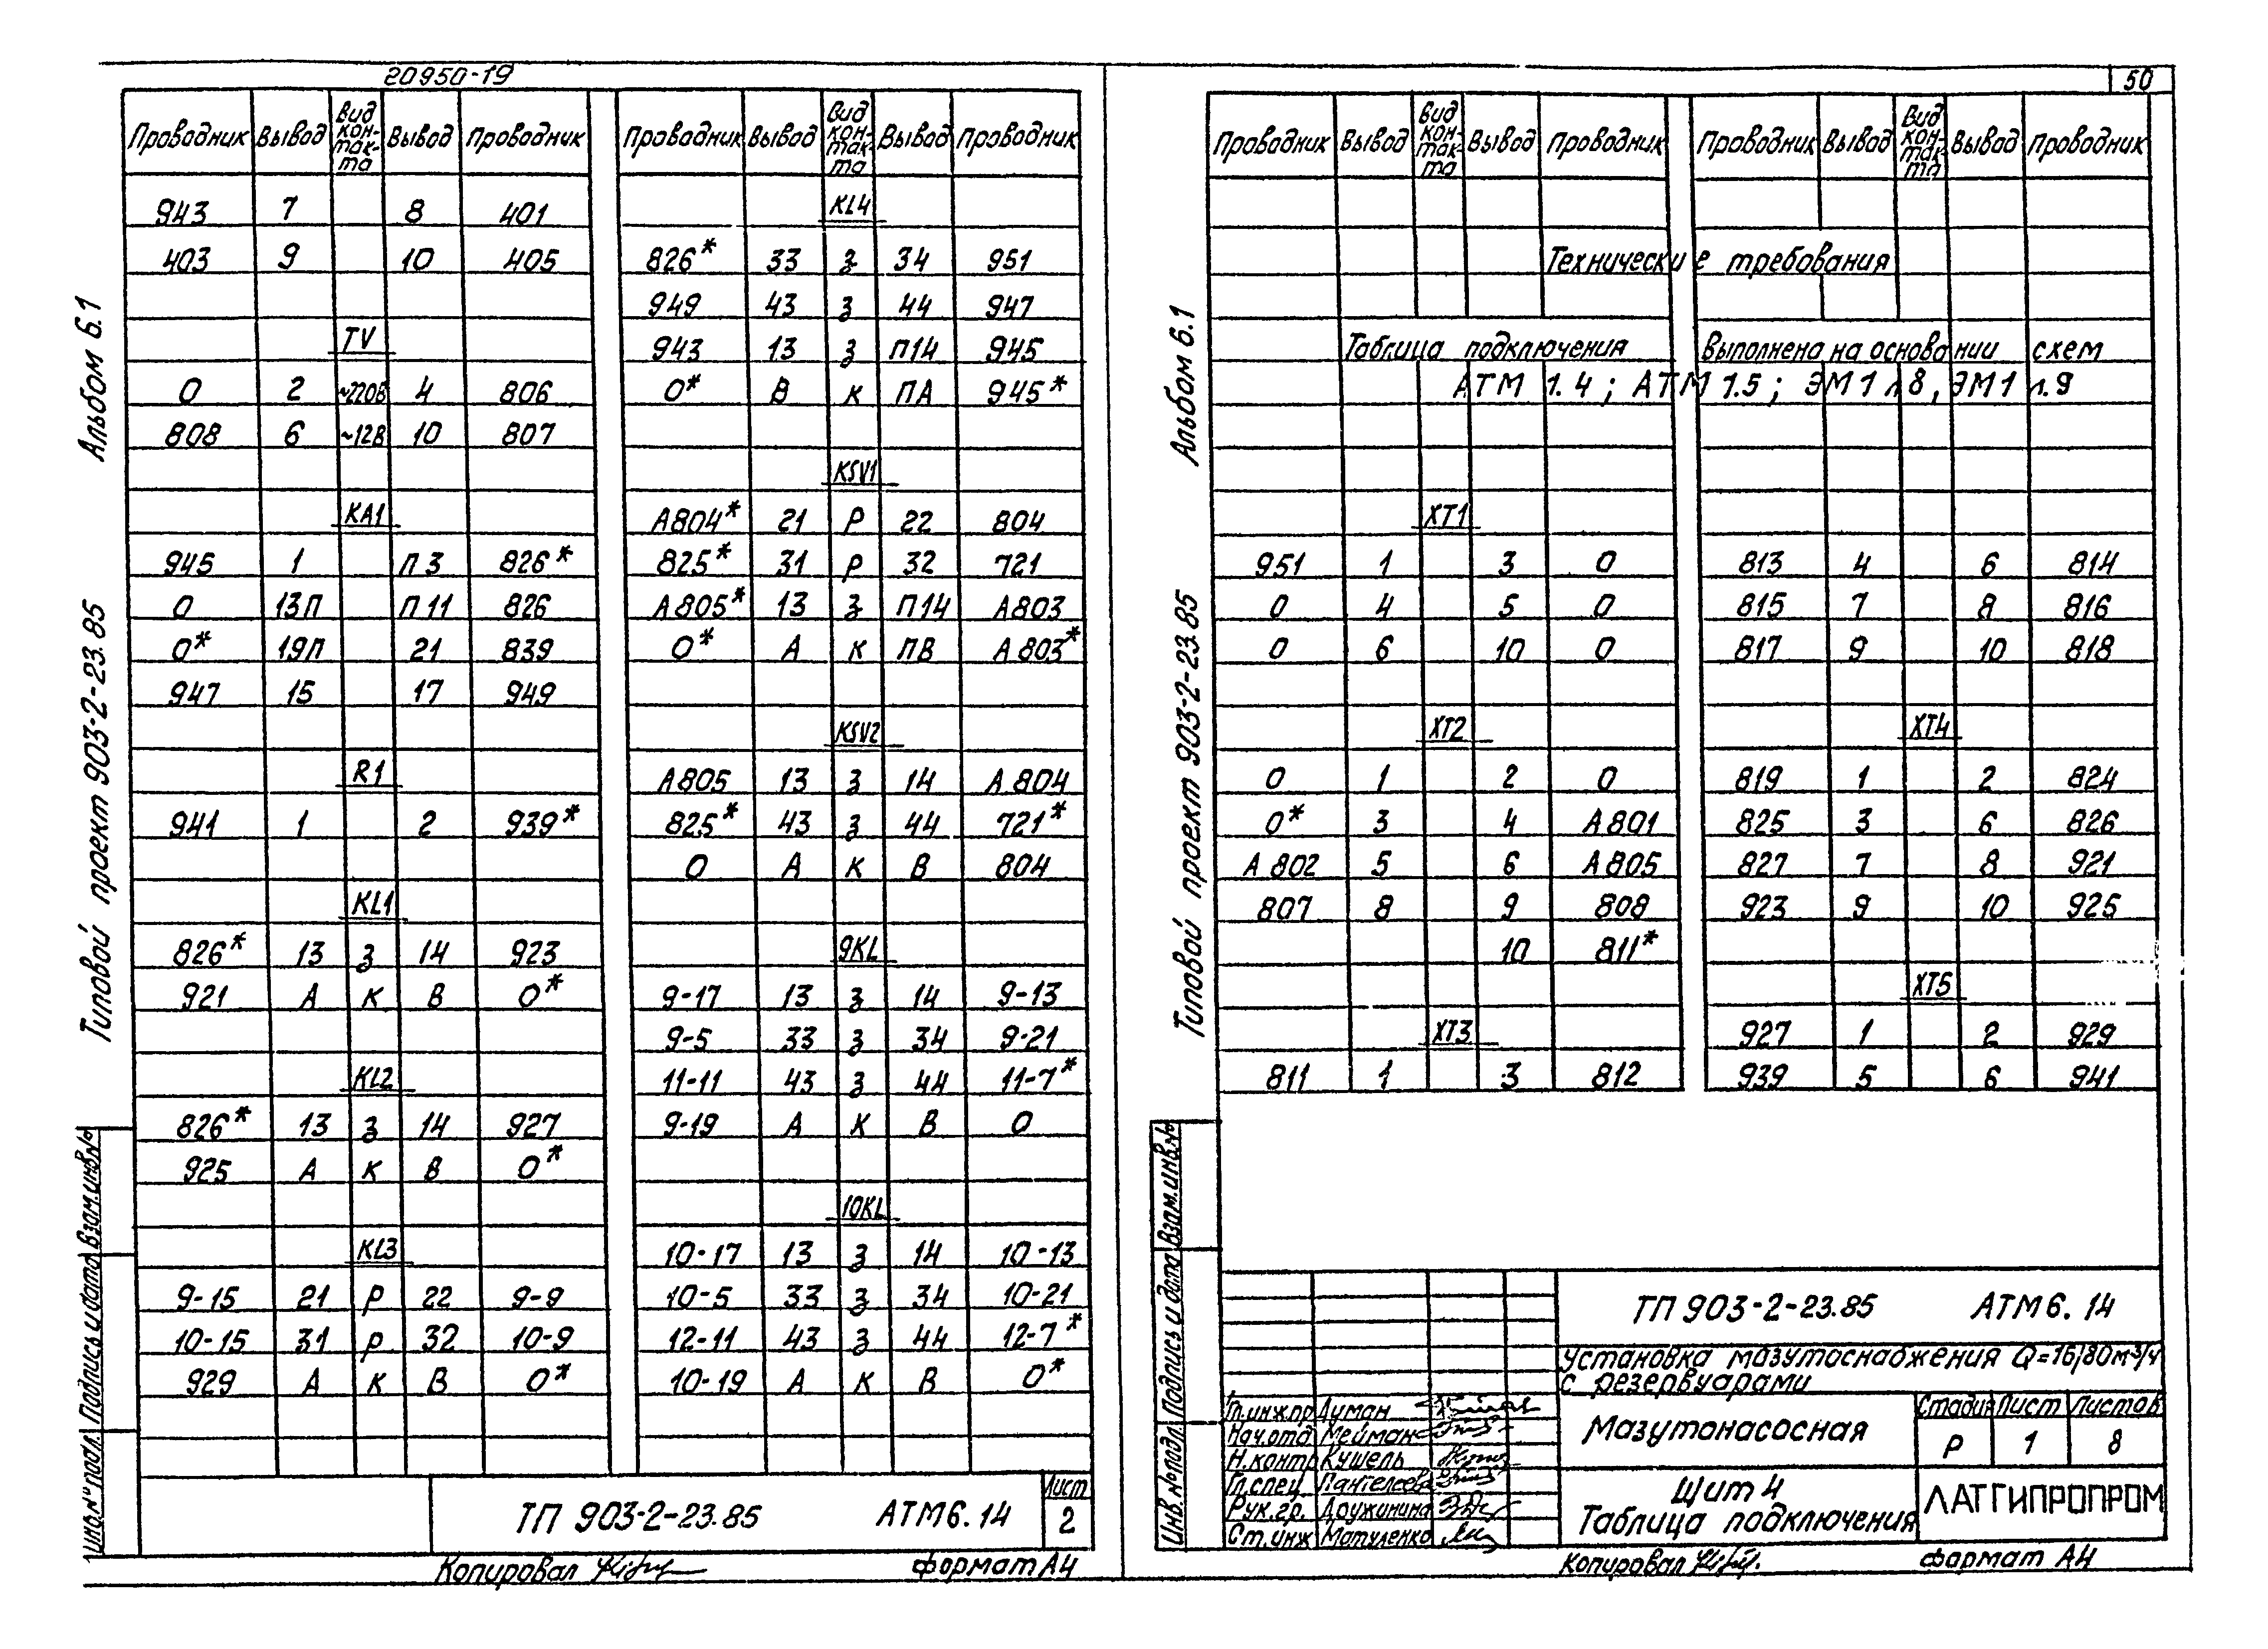 20950-19
50
Альбом 6.1
Типовой проект 903-2-23.85
Инв.№ подл. Подпись и дата Взам.инв.№
Проводник Вывод Вид кон-так-та Вывод Проводник
943 7 8 401
403 9 10 405
TV
0 2 ~220В 4 806
808 6 ~12В 10 807
КА1
945 1 П3 826*
0 13П П11 826
0* 19П 21 839
947 15 17 949
R1
941 1 2 939*
KL1
826* 13 з 14 923
921 А к В 0*
KL2
826* 13 з 14 927
925 А к В 0*
KL3
9-15 21 р 22 9-9
10-15 31 р 32 10-9
929 А к В 0*
Проводник Вывод Вид кон-так-та Вывод Проводник
KL4
826* 33 з 34 951
949 43 з 44 947
943 13 з П14 945
0* В к ПА 945*
KSV1
А804* 21 р 22 804
825* 31 р 32 721
А805* 13 з П14 А803
0* А к ПВ А803*
KSV2
А805 13 з 14 А804
825* 43 з 44 721*
0 А к В 804
9KL
9-17 13 з 14 9-13
9-5 33 з 34 9-21
11-11 43 з 44 11-7*
9-19 А к В 0
10KL
10-17 13 з 14 10-13
10-5 33 з 34 10-21
12-11 43 з 44 12-7*
10-19 А к В 0*
ТП 903-2-23.85 АТМ6.14
Лист
2
Копировал
формат А4
Альбом 6.1
Типовой проект 903-2-23.85
Инв.№ подл. Подпись и дата Взам.инв.№
Проводник Вывод Вид кон-так-та Вывод Проводник
Проводник Вывод Вид кон-так-та Вывод Проводник
Технические требования
Таблица подключения выполнена на основании схем
АТМ 1.4; АТМ 1.5; ЭМ1 л8, ЭМ1 л.9
ХТ1
951 1 3 0
0 4 5 0
0 6 10 0
ХТ2
0 1 2 0
0* 3 4 А801
А802 5 6 А805
807 8 9 808
10 811*
ХТ3
811 1 3 812
813 4 6 814
815 7 8 816
817 9 10 818
ХТ4
819 1 2 824
825 3 6 826
827 7 8 921
923 9 10 925
ХТ5
927 1 2 929
939 5 6 941
ТП 903-2-23.85 АТМ6.14
Установка мазутоснабжения Q=16/80м³/ч
с резервуарами
Гл.инж.пр Думан
Нач.отд Мейман
Н.контр Кушель
Гл.спец. Пантелеева
Рук.гр. Дружинина
Ст.инж Матуленко
Мазутонасосная
Стадия Лист Листов
Р 1 8
Щит 4
Таблица подключения
ЛАТГИПРОПРОМ
Копировал
формат А4